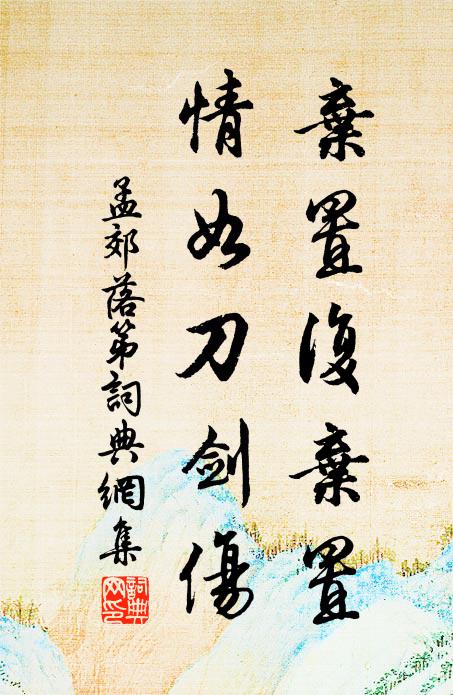 棄置復棄置
情如刀劍傷
孟郊落第詞典網集
詞典
网印